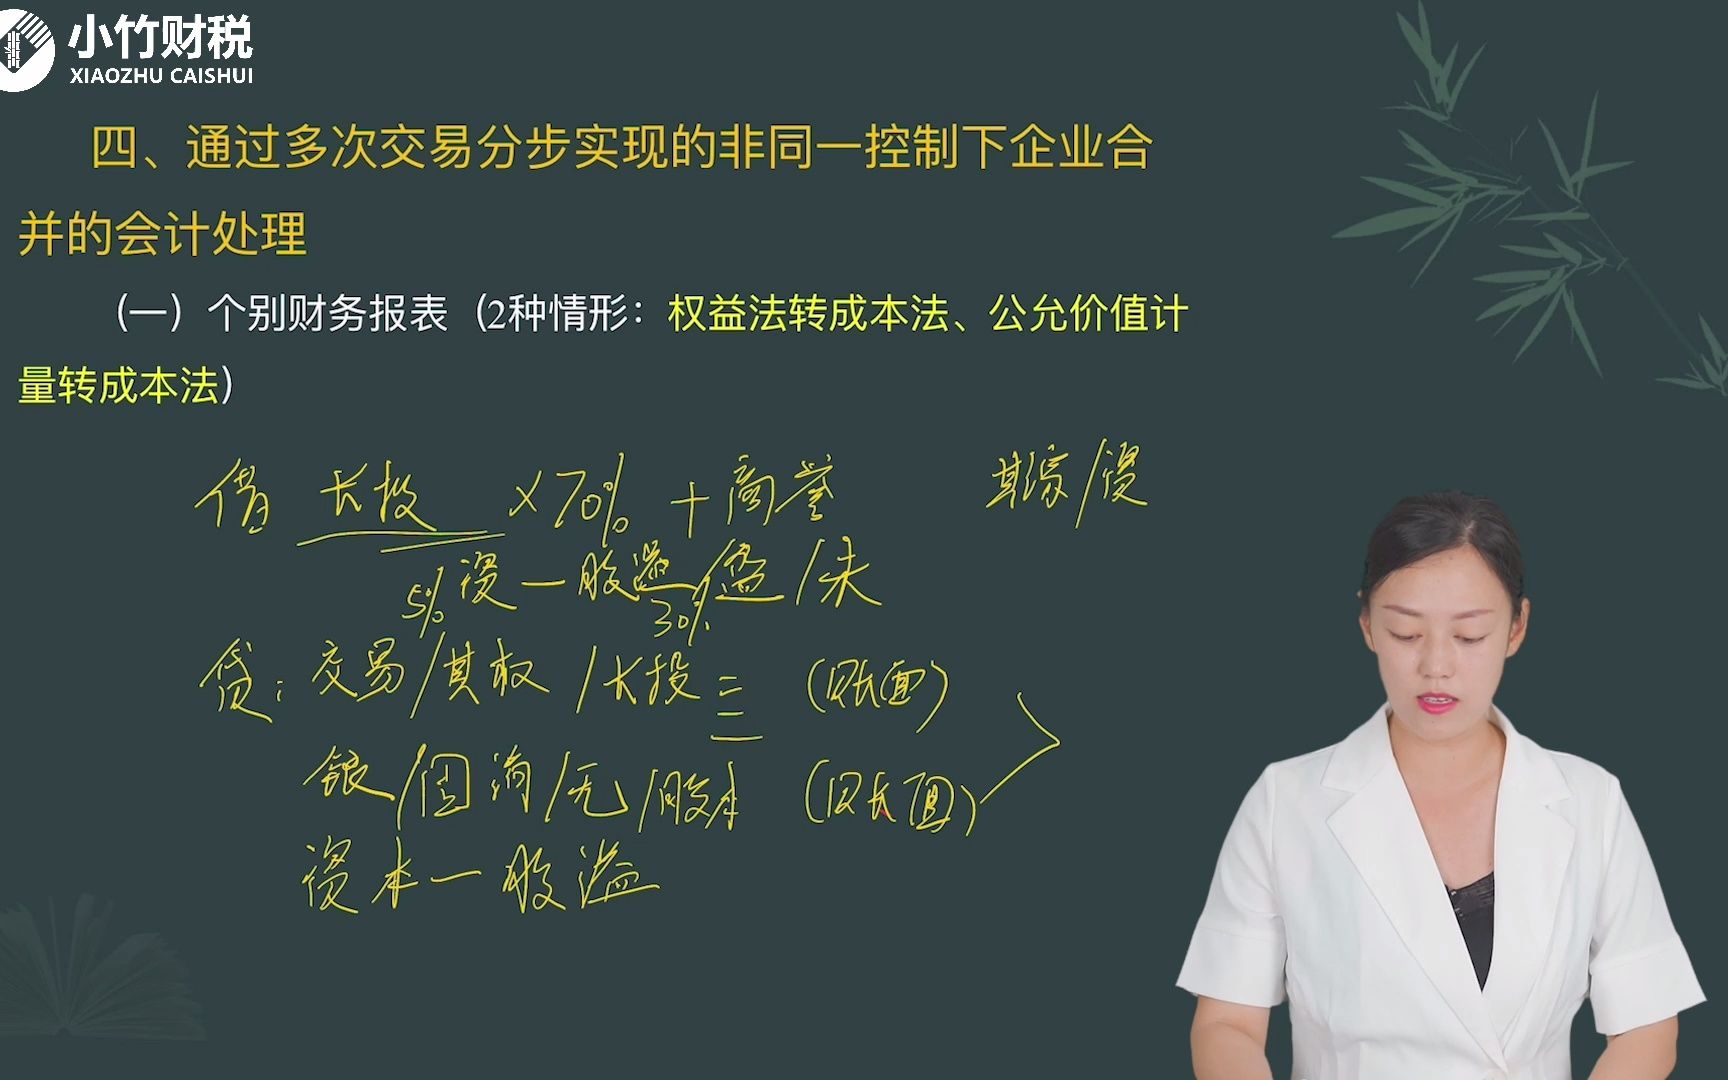 小竹财税
XIAOZHU CAISHUI
四、通过多次交易分步实现的非同一控制下企业合
并的会计处理
(一)个别财务报表(2种情形：权益法转成本法、公允价值计
量转成本法)
借 长投 ×70% +商誉
5% 资一股溢/盈/未
30%
贷: 交易/其权/长投 (账面)
银/固清/无/股本 (账面)
资本一股溢